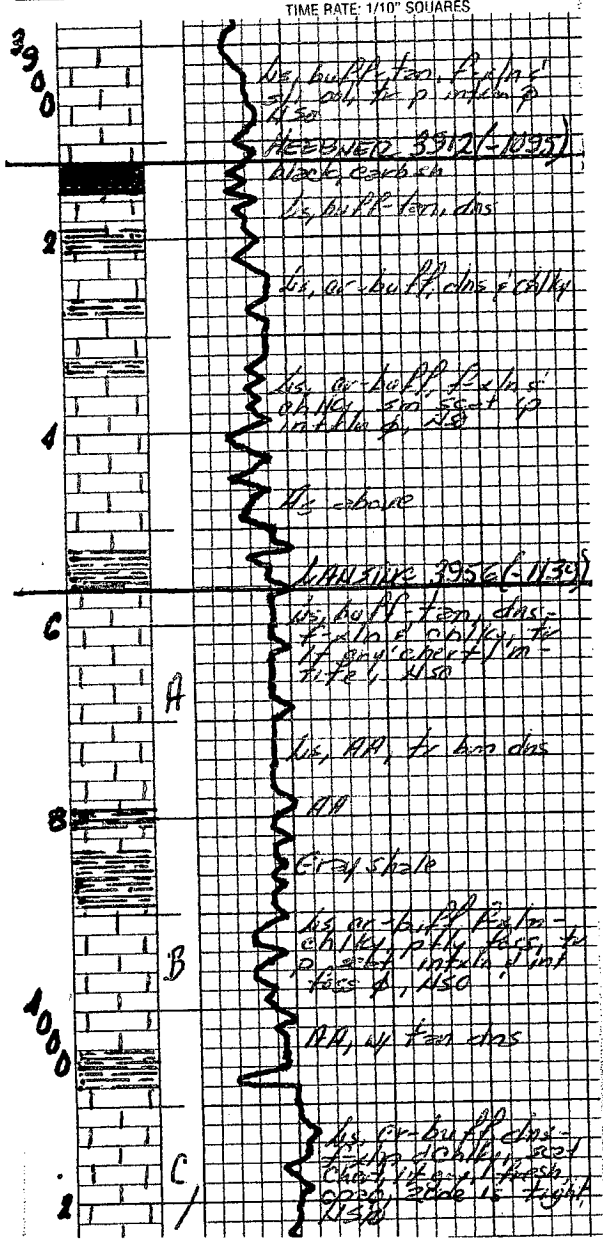 TIME RATE: 1/10" SQUARES
3900
Ls, buff-tan, f-xln &
sl ool, tr p intxln φ
NSO
HEEBNER 3912 (-1095)
black, carb sh
Ls, buff-tan, dns
2
Ls, cr-buff, dns & chlky
Ls, cr-buff, f-xln &
chlky, sm scat p
intxln φ, NSO
4
As above
LANSING 3956 (-1139)
Ls, buff-tan, dns-
f-xln & chlky, tr
lt gry chert
NSO
6
A
Ls, AA, tr brn dns
8
AA
Gray shale
Ls cr-buff f-xln-
chlky, ptly foss, tr
p scat intxln & int
foss φ, NSO
B
4000
AA, w/ tan dns
Ls, cr-buff dns-
f-xln & chlky, scat
chert, lt gry, fresh,
zone is tight
NSO
C
2